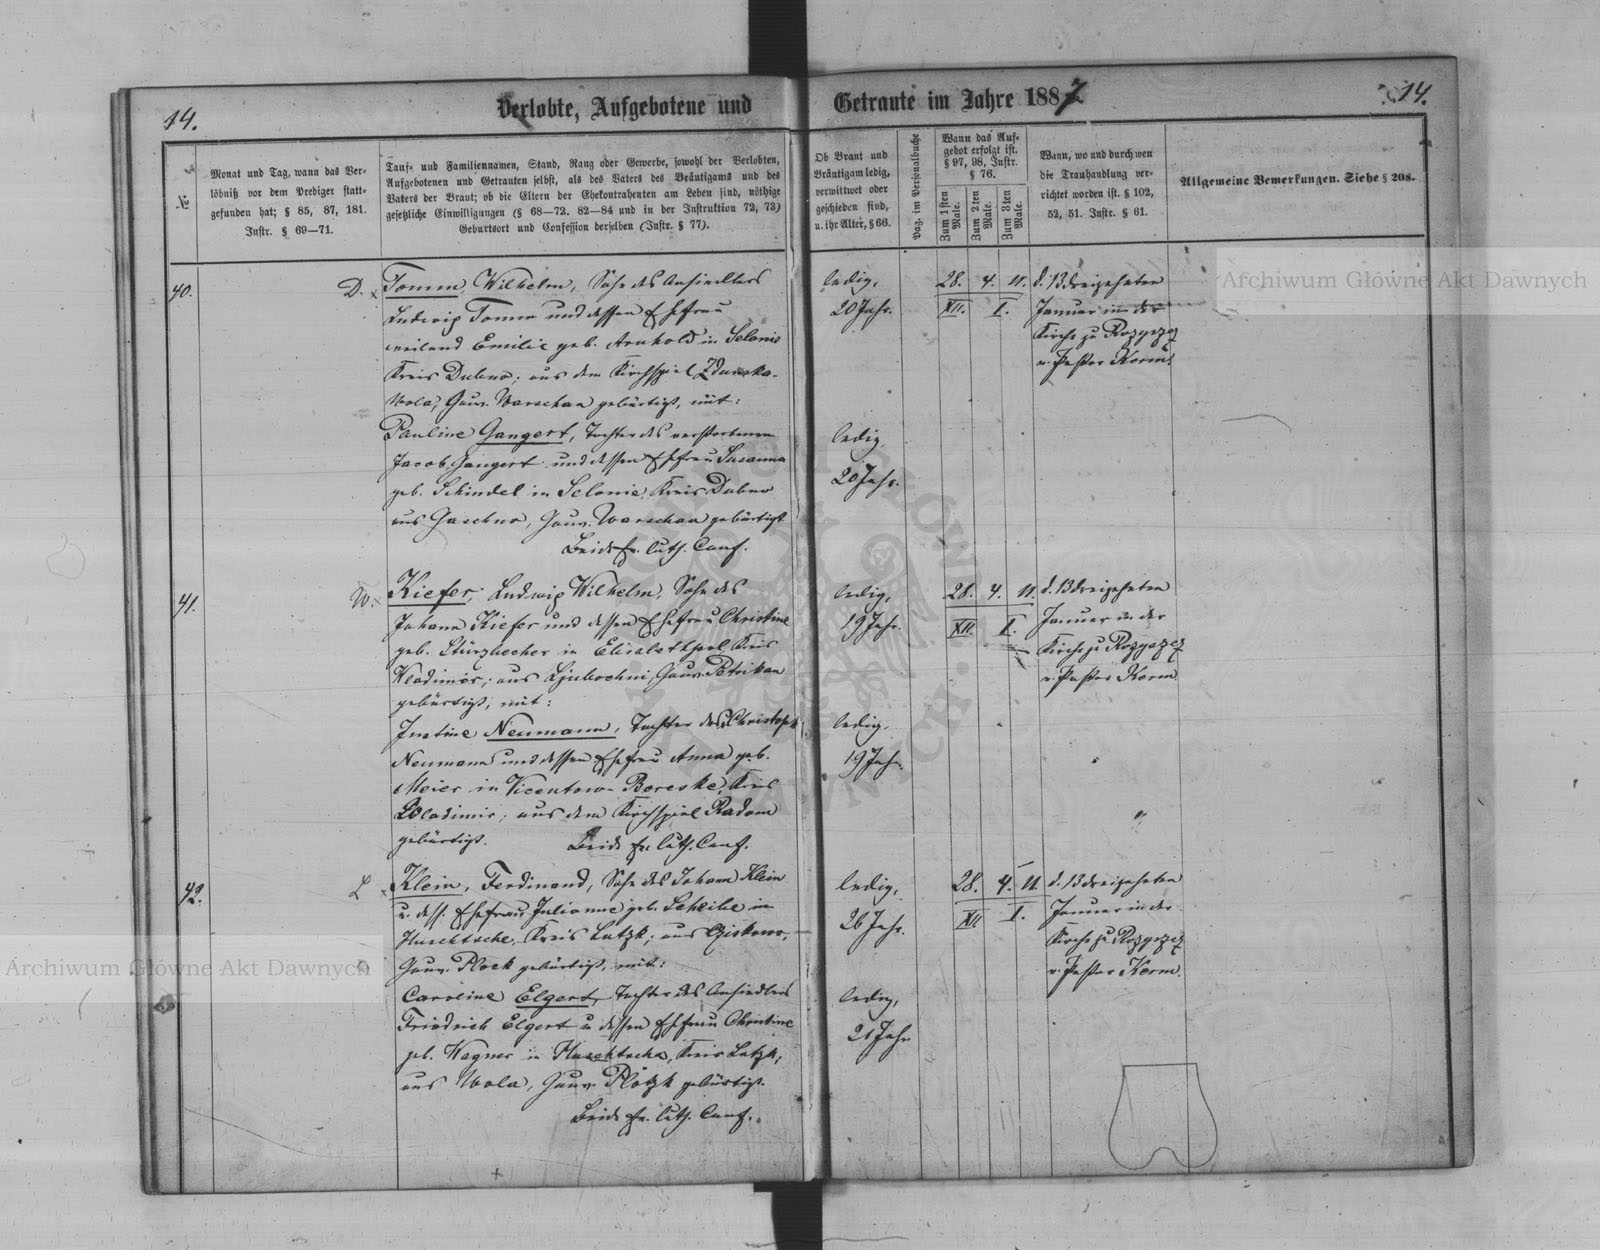 14.
Verlobte, Aufgebotene und Getraute im Jahre 1887
14.
№
Monat und Tag, wann das Ver-
löbniß vor dem Prediger statt-
gefunden hat; § 85, 87, 181.
Instr. § 69—71.
Tauf- und Familiennamen, Stand, Rang oder Gewerbe, sowohl der Verlobten,
Aufgebotenen und Getrauten selbst, als des Vaters des Bräutigams und des
Vaters der Braut; ob die Eltern der Ehekontrahenten am Leben sind, nöthige
gesetzliche Einwilligungen (§ 68—72. 82—84 und in der Instruktion 72, 73)
Geburtsort und Confession derselben (Instr. § 77).
Ob Braut und
Bräutigam ledig,
verwittwet oder
geschieden sind,
u. ihr Alter, § 66.
Pag. im Personalbuche
Wann das Auf-
gebot erfolgt ist.
§ 97, 98, Instr.
§ 76.
Zum 1sten Male.
Zum 2ten Male.
Zum 3ten Male.
Wann, wo und durch wen
die Trauhandlung ver-
richtet worden ist. § 102,
52, 51. Instr. § 61.
Allgemeine Bemerkungen. Siehe § 208.
40.
D.
Tomm, Wilhelm, Sohn des Ansiedlers
Ludwig Tomm und dessen Ehefrau
weiland Emilie geb. Arnhold in Selonie
Kreis Dubno; aus dem Kirchspiel Zdunska-
Wola, Gouv. Warschau gebürtigt, mit:
Pauline Gangert, Tochter des verstorbenen
Jacob Gangert und dessen Ehefrau Susanna
geb. Schindel in Selonie, Kreis Dubno
aus Gaschno, Gouv. Warschau gebürtigt
Beide ev. luth. Conf.
ledig,
20 Jahr.
ledig,
20 Jahr.
28. 4. 11.
XII. I.
d. 13 dreizehnten
Januar in der
Kirche zu Rozyszcz
v. Pastor Kerm.
41.
W.
Kiefer, Ludwig Wilhelm, Sohn des
Johann Kiefer und dessen Ehefrau Christine
geb. Stürzbecher in Elisabeththal Kreis
Wladimir; aus Ljubochni, Gouv. Petrikau
gebürtigt, mit:
Justine Neumann, Tochter des Christoph
Neumann und dessen Ehefrau Anna geb.
Meier in Vicentow-Boreske, Kreis
Wladimir, aus dem Kirchspiel Radom
gebürtigt. Beide ev. luth. Conf.
ledig,
19 Jahr.
ledig,
19 Jahr.
28. 4. 11.
XII. I.
d. 13 dreizehnten
Januar in der
Kirche zu Rozyszcz
v. Pastor Kerm
42.
L
Klein, Ferdinand, Sohn des Johann Klein
u. dess. Ehefrau Julianne geb. Scheibe in
Kreis Lutzk; aus
Gouv. Plock gebürtigt, mit:
Caroline Elgert, Tochter des Ansiedlers
Friedrich Elgert u dessen Ehefrau Christine
geb. Wagner in Kreis Lutzk;
aus Wola, Gouv. Plotzk gebürtigt.
Beide ev. luth. Conf.
ledig,
26 Jahr.
ledig,
21 Jahr
28. 4. 11.
XII I.
d. 13 dreizehnten
Januar in der
Kirche zu Rozyszcz
v. Pastor Kerm.
Archiwum Główne Akt Dawnych
Archiwum Główne Akt Dawnych